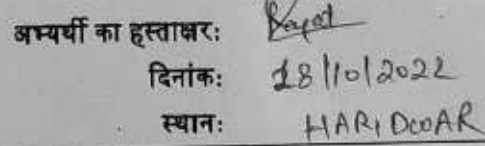 अभ्यर्थी का हस्ताक्षर:
दिनांक: 18/10/2022
स्थान: HARIDWAR